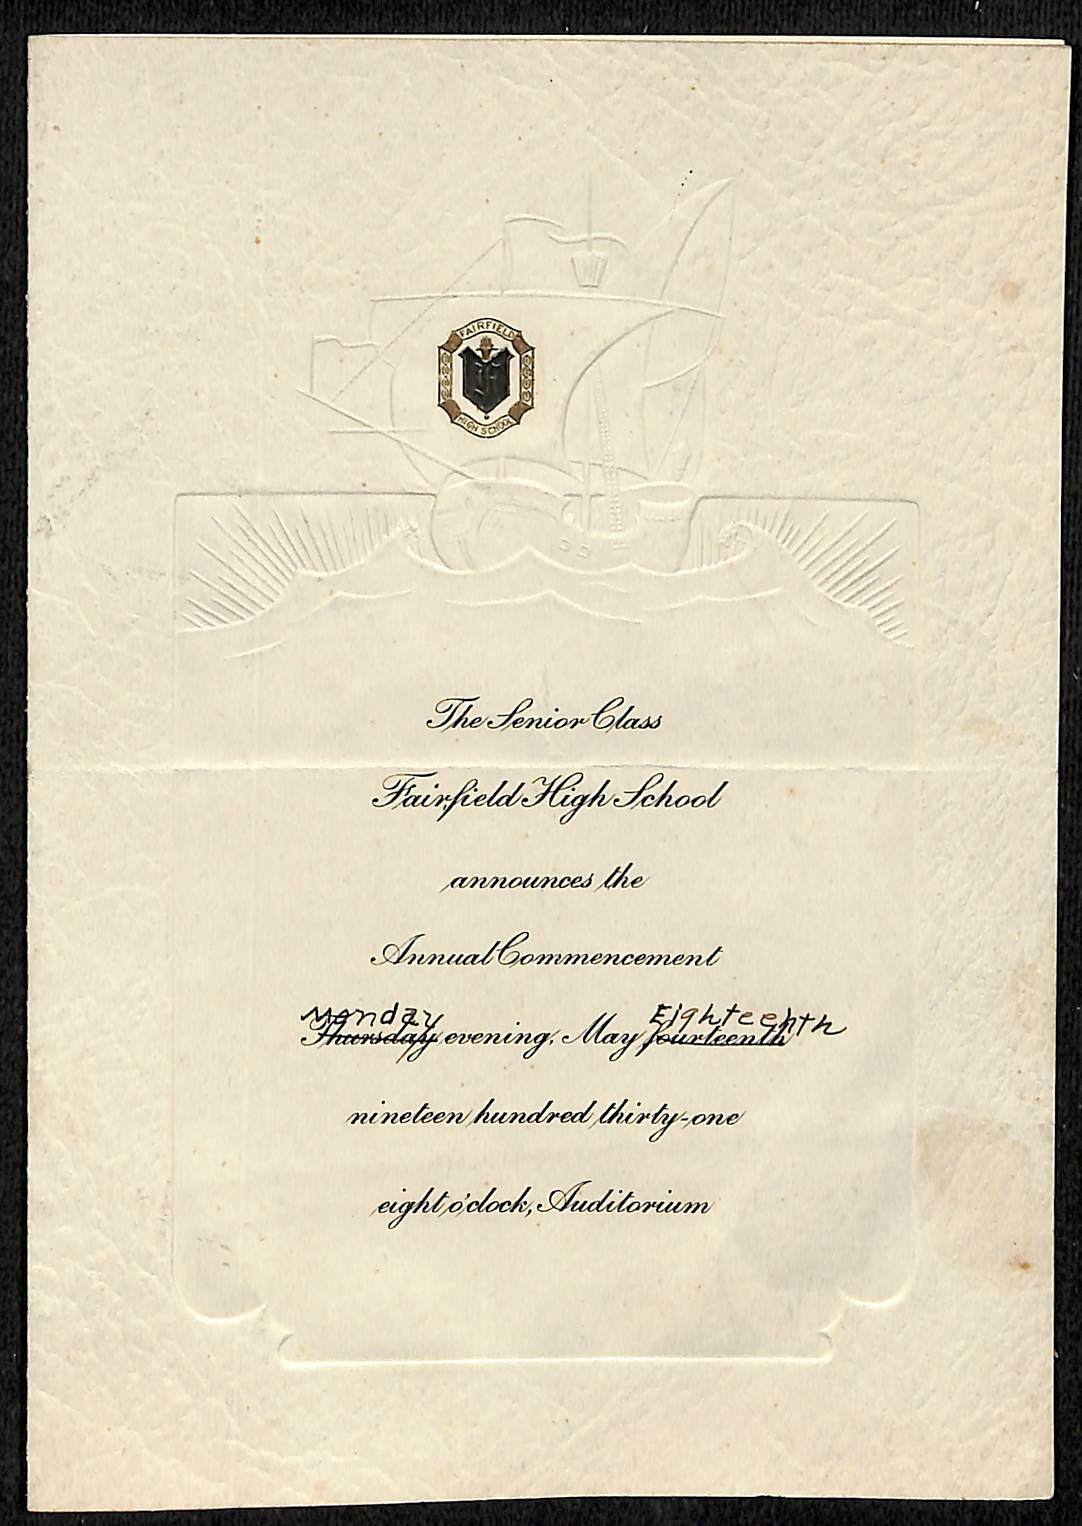 FAIRFIELD
HIGH SCHOOL
The Senior Class
Fairfield High School
announces the
Annual Commencement
Monday Eighteehth
Thursday evening, May fourteenth
nineteen hundred thirty-one
eight o'clock, Auditorium